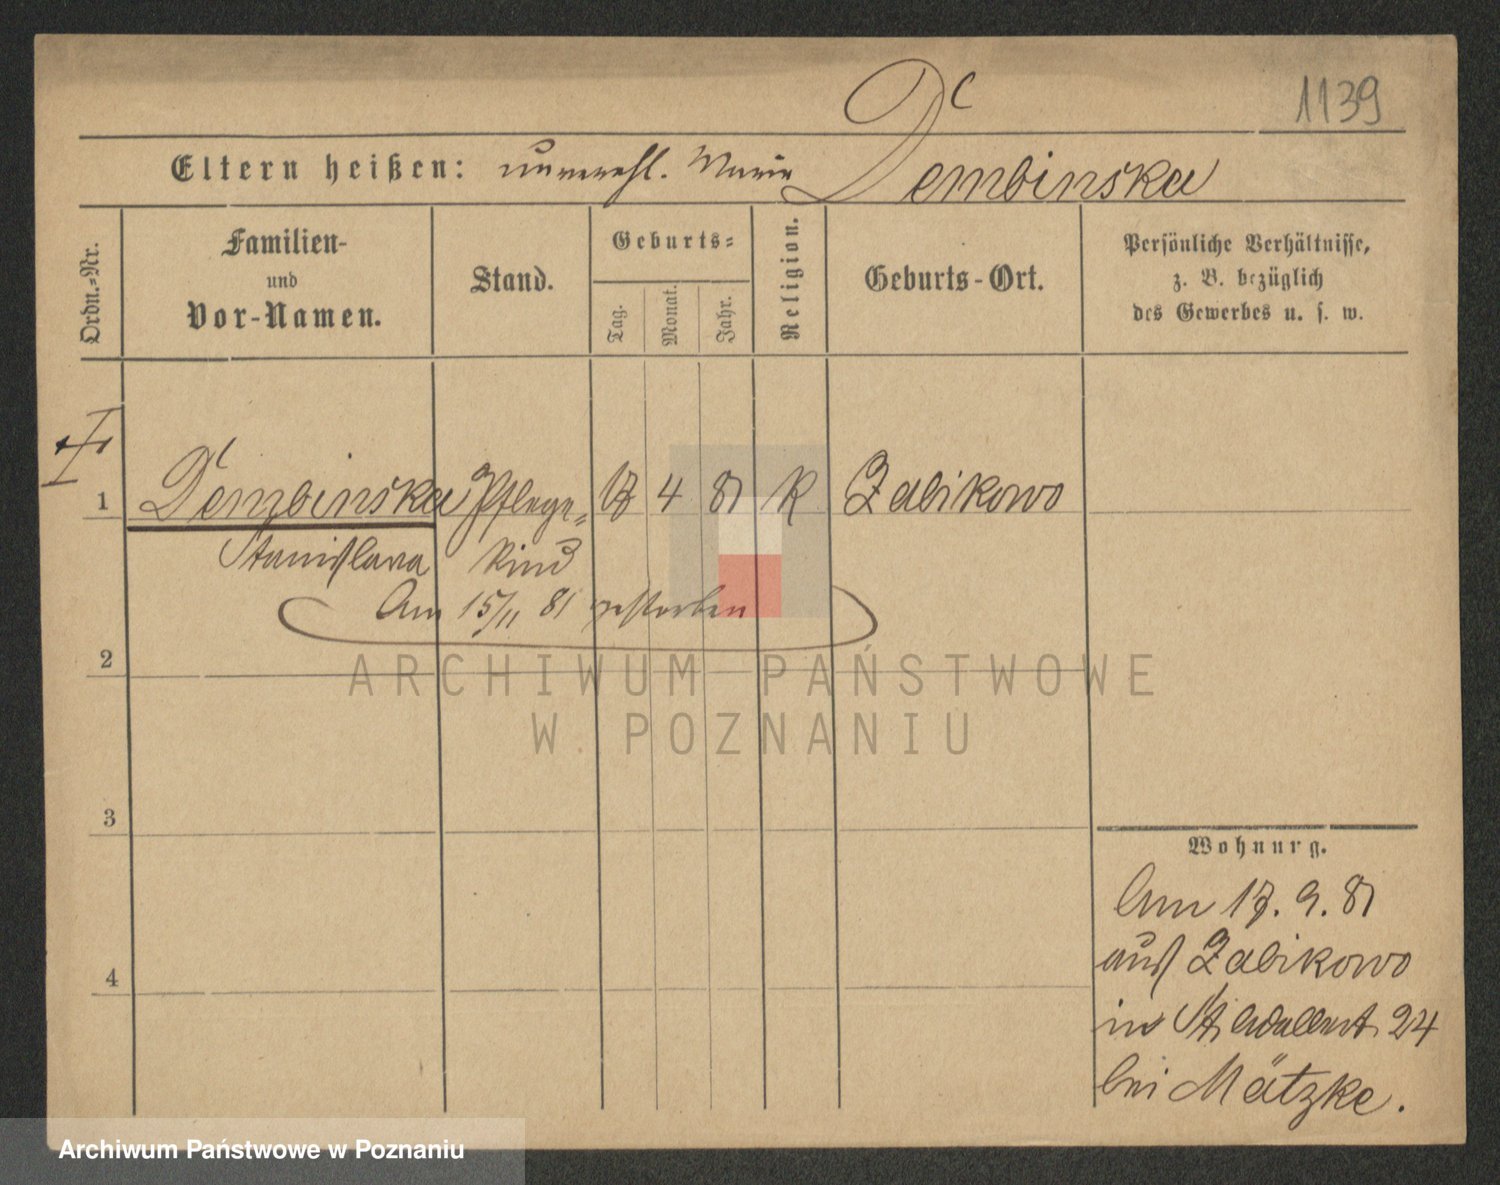 1139
Eltern heißen: unverehl. Marie Dembinska
Ordn.-Nr.
Familien-
und
Vor-Namen.
Stand.
Geburts-
Tag.
Monat.
Jahr.
Religion.
Geburts-Ort.
Persönliche Verhältnisse,
z. B. bezüglich
des Gewerbes u. s. w.
1 Dembinska Pflege- 17 4 81 K Zabikowo
Stanislava kind
Am 15/11 81 gestorben
2
3
4
Wohnung.
Am 17. 9. 81
aus Zabikowo
in St. Adalbert 24
bei Mätzke.
ARCHIWUM PAŃSTWOWE
W POZNANIU
Archiwum Państwowe w Poznaniu